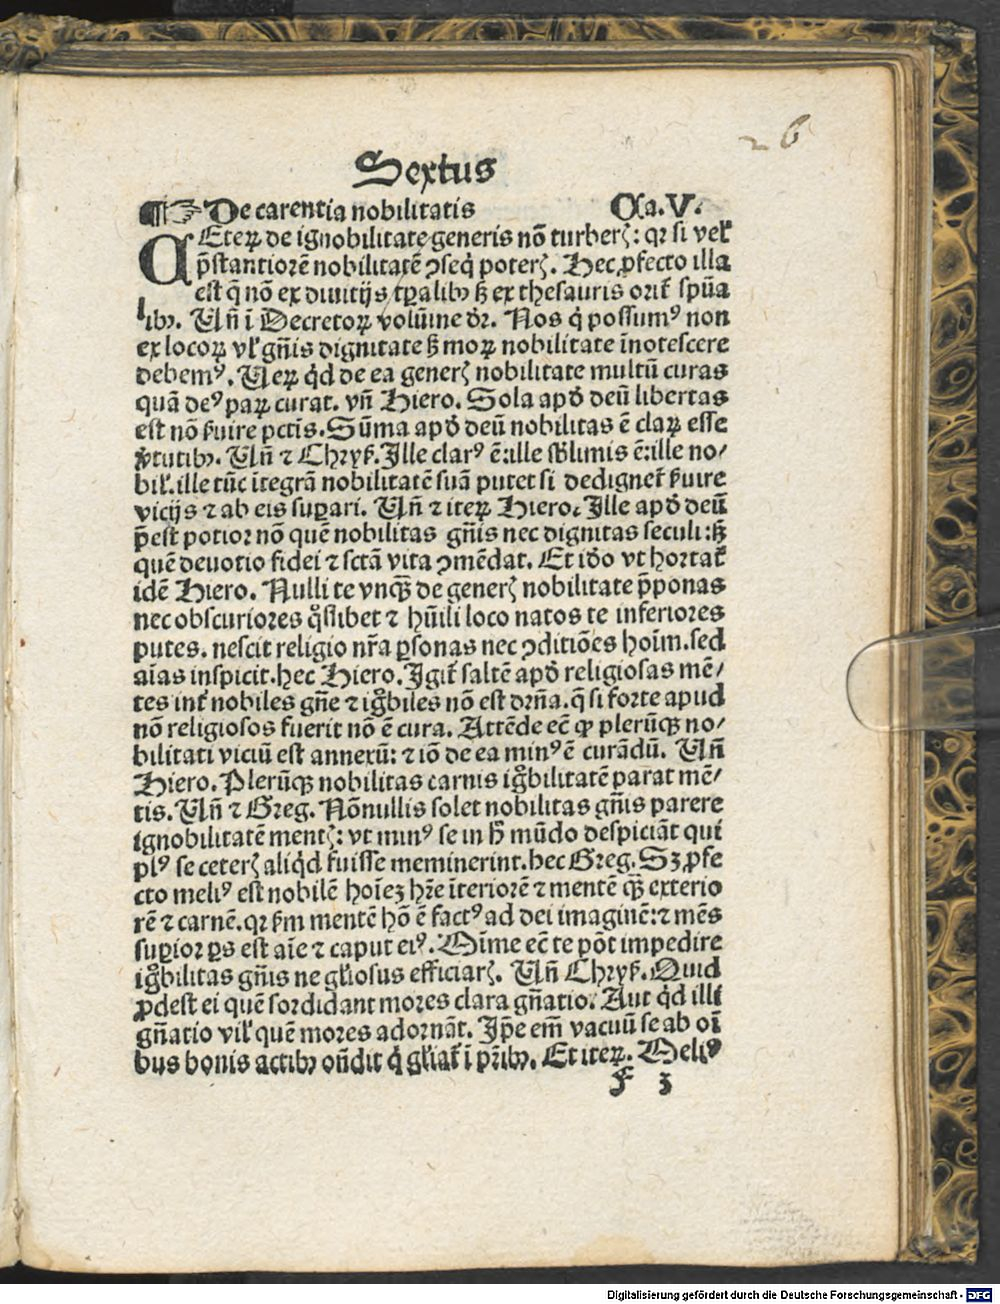 Sextus
26
¶☞ De carentia nobilitatis Ca. V.
CEteꝝ de ignobilitate generis nō turberꝭ: qꝛ si velꝭ
p̄stantiorē nobilitatē ↄseq̇ poterꝭ. Hec ꝓfecto illa
est q̄ nō ex diuitijs tꝑalibꝰ sꝫ ex thesauris orit᷑ spūa
libꝰ. Vn̄ ī Decretoꝝ volūine dr̄. Nos q̇ possumꝰ non
ex locoꝝ vl᷑ gn̄is dignitate sꝫ moꝝ nobilitate īnotescere
debemꝰ. Veꝝ qd̛ de ea generꝭ nobilitate multū curas
quā deꝰ paꝝ curat. vn̄ Hiero. Sola apd̛ deū libertas
est nō ẜuire pctīs. Sūma apd̛ deū nobilitas ē claꝝ esse
v̓tutibꝰ. Vn̄ ⁊ Chryẜ. Ille clarꝰ ē: ille sb̓limis ē: ille no/
bil᷑. ille tūc ītegrā nobilitatē suā putet si dedignet᷑ ẜuire
vicijs ⁊ ab eis suꝑari. Vn̄ ⁊ iteꝝ Hiero. Ille apd̛ deū
p̄est potior nō quē nobilitas gn̄is nec dignitas seculi: sꝫ
quē deuotio fidei ⁊ sctā vita ↄmēdat. Et id̓o vt hortat᷑
idē Hiero. Nulli te vnqꝫ̄ de generꝭ nobilitate p̄ponas
nec obscuriores qͦslibet ⁊ hūili loco natos te inferiores
putes. nescit religio nr̄a ꝑsonas nec ↄditiōes hoīm. sed
aīas inspicit. hec Hiero. Igit᷑ saltē apd̛ religiosas mē/
tes int᷑ nobiles gn̄e ⁊ igͦbiles nō est drn̄a. q̄ si forte apud
nō religiosos fuerit nō ē cura. Attēde ec̄ ꝙ plerūqꝫ no/
bilitati viciū est annexū: ⁊ iō de ea minꝰ ē curādū. Vn̄
Hiero. Plerūqꝫ nobilitas carnis igͦbilitatē parat mē/
tis. Vn̄ ⁊ Greg. Nōnullis solet nobilitas gn̄is parere
ignobilitatē mentꝭ: vt minꝰ se in h̄ mūdo despiciāt qui
plꝰ se ceterꝭ aliqd̛ fuisse meminerint. hec Greg. Sꝫ ꝓfe
cto meliꝰ est nobilē hoīeꝫ hr̄e īteriorē ⁊ mentē qꝫ̄ exterio
rē ⁊ carnē. qꝛ ẜm mentē hō ē factꝰ ad dei imaginē: ⁊ mēs
suꝑior ꝑs est aīe ⁊ caput eiꝰ. Mīme ec̄ te pōt impedire
igͦbilitas gn̄is ne gl̓iosus efficiarꝭ. Vn̄ Chryẜ. Quid
ꝓdest ei quē sordidant mores clara gn̄atio. Aut qd̛ illi
gn̄atio vil᷑ quē mores adornāt. Ip̄e em̄ vacuū se ab oī
bus bonis actibꝰ on̄dit q̇ gl̓iat᷑ ī pr̄ibꝰ. Et iteꝝ. Meliꝰ
f 3
Digitalisierung gefördert durch die Deutsche Forschungsgemeinschaft - DFG